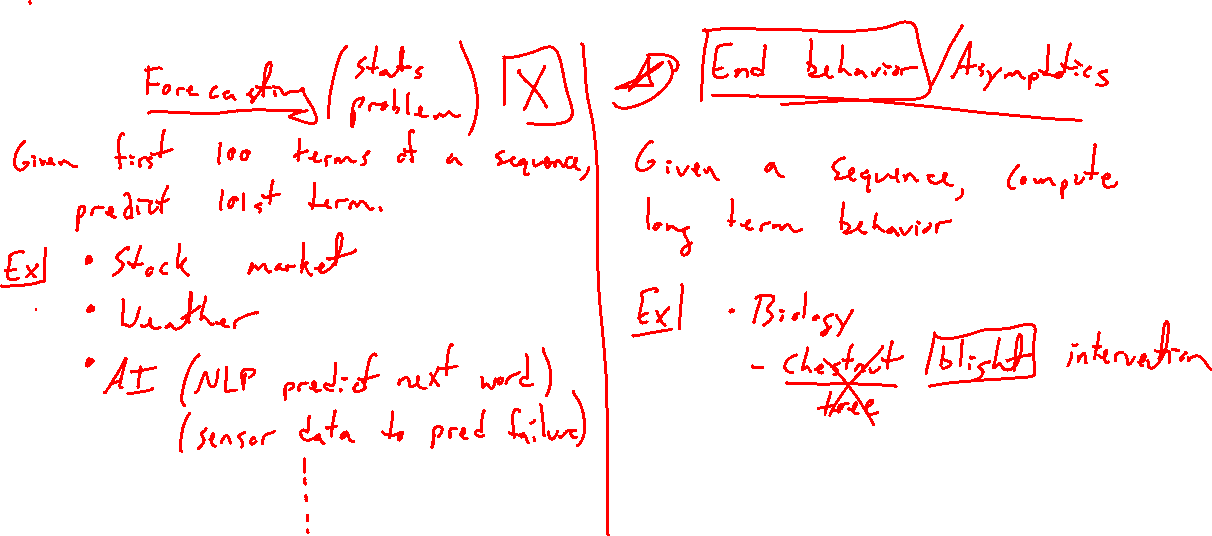 Forecasting (stats problem) X
Given first 100 terms of a sequence,
predict 101st term.
Ex • Stock market
• Weather
• AI (NLP predict next word)
(sensor data to pred failure)
End behavior / Asymptotics
Given a sequence, compute
long term behavior
Ex • Biology
- chestnut blight intervention
tree